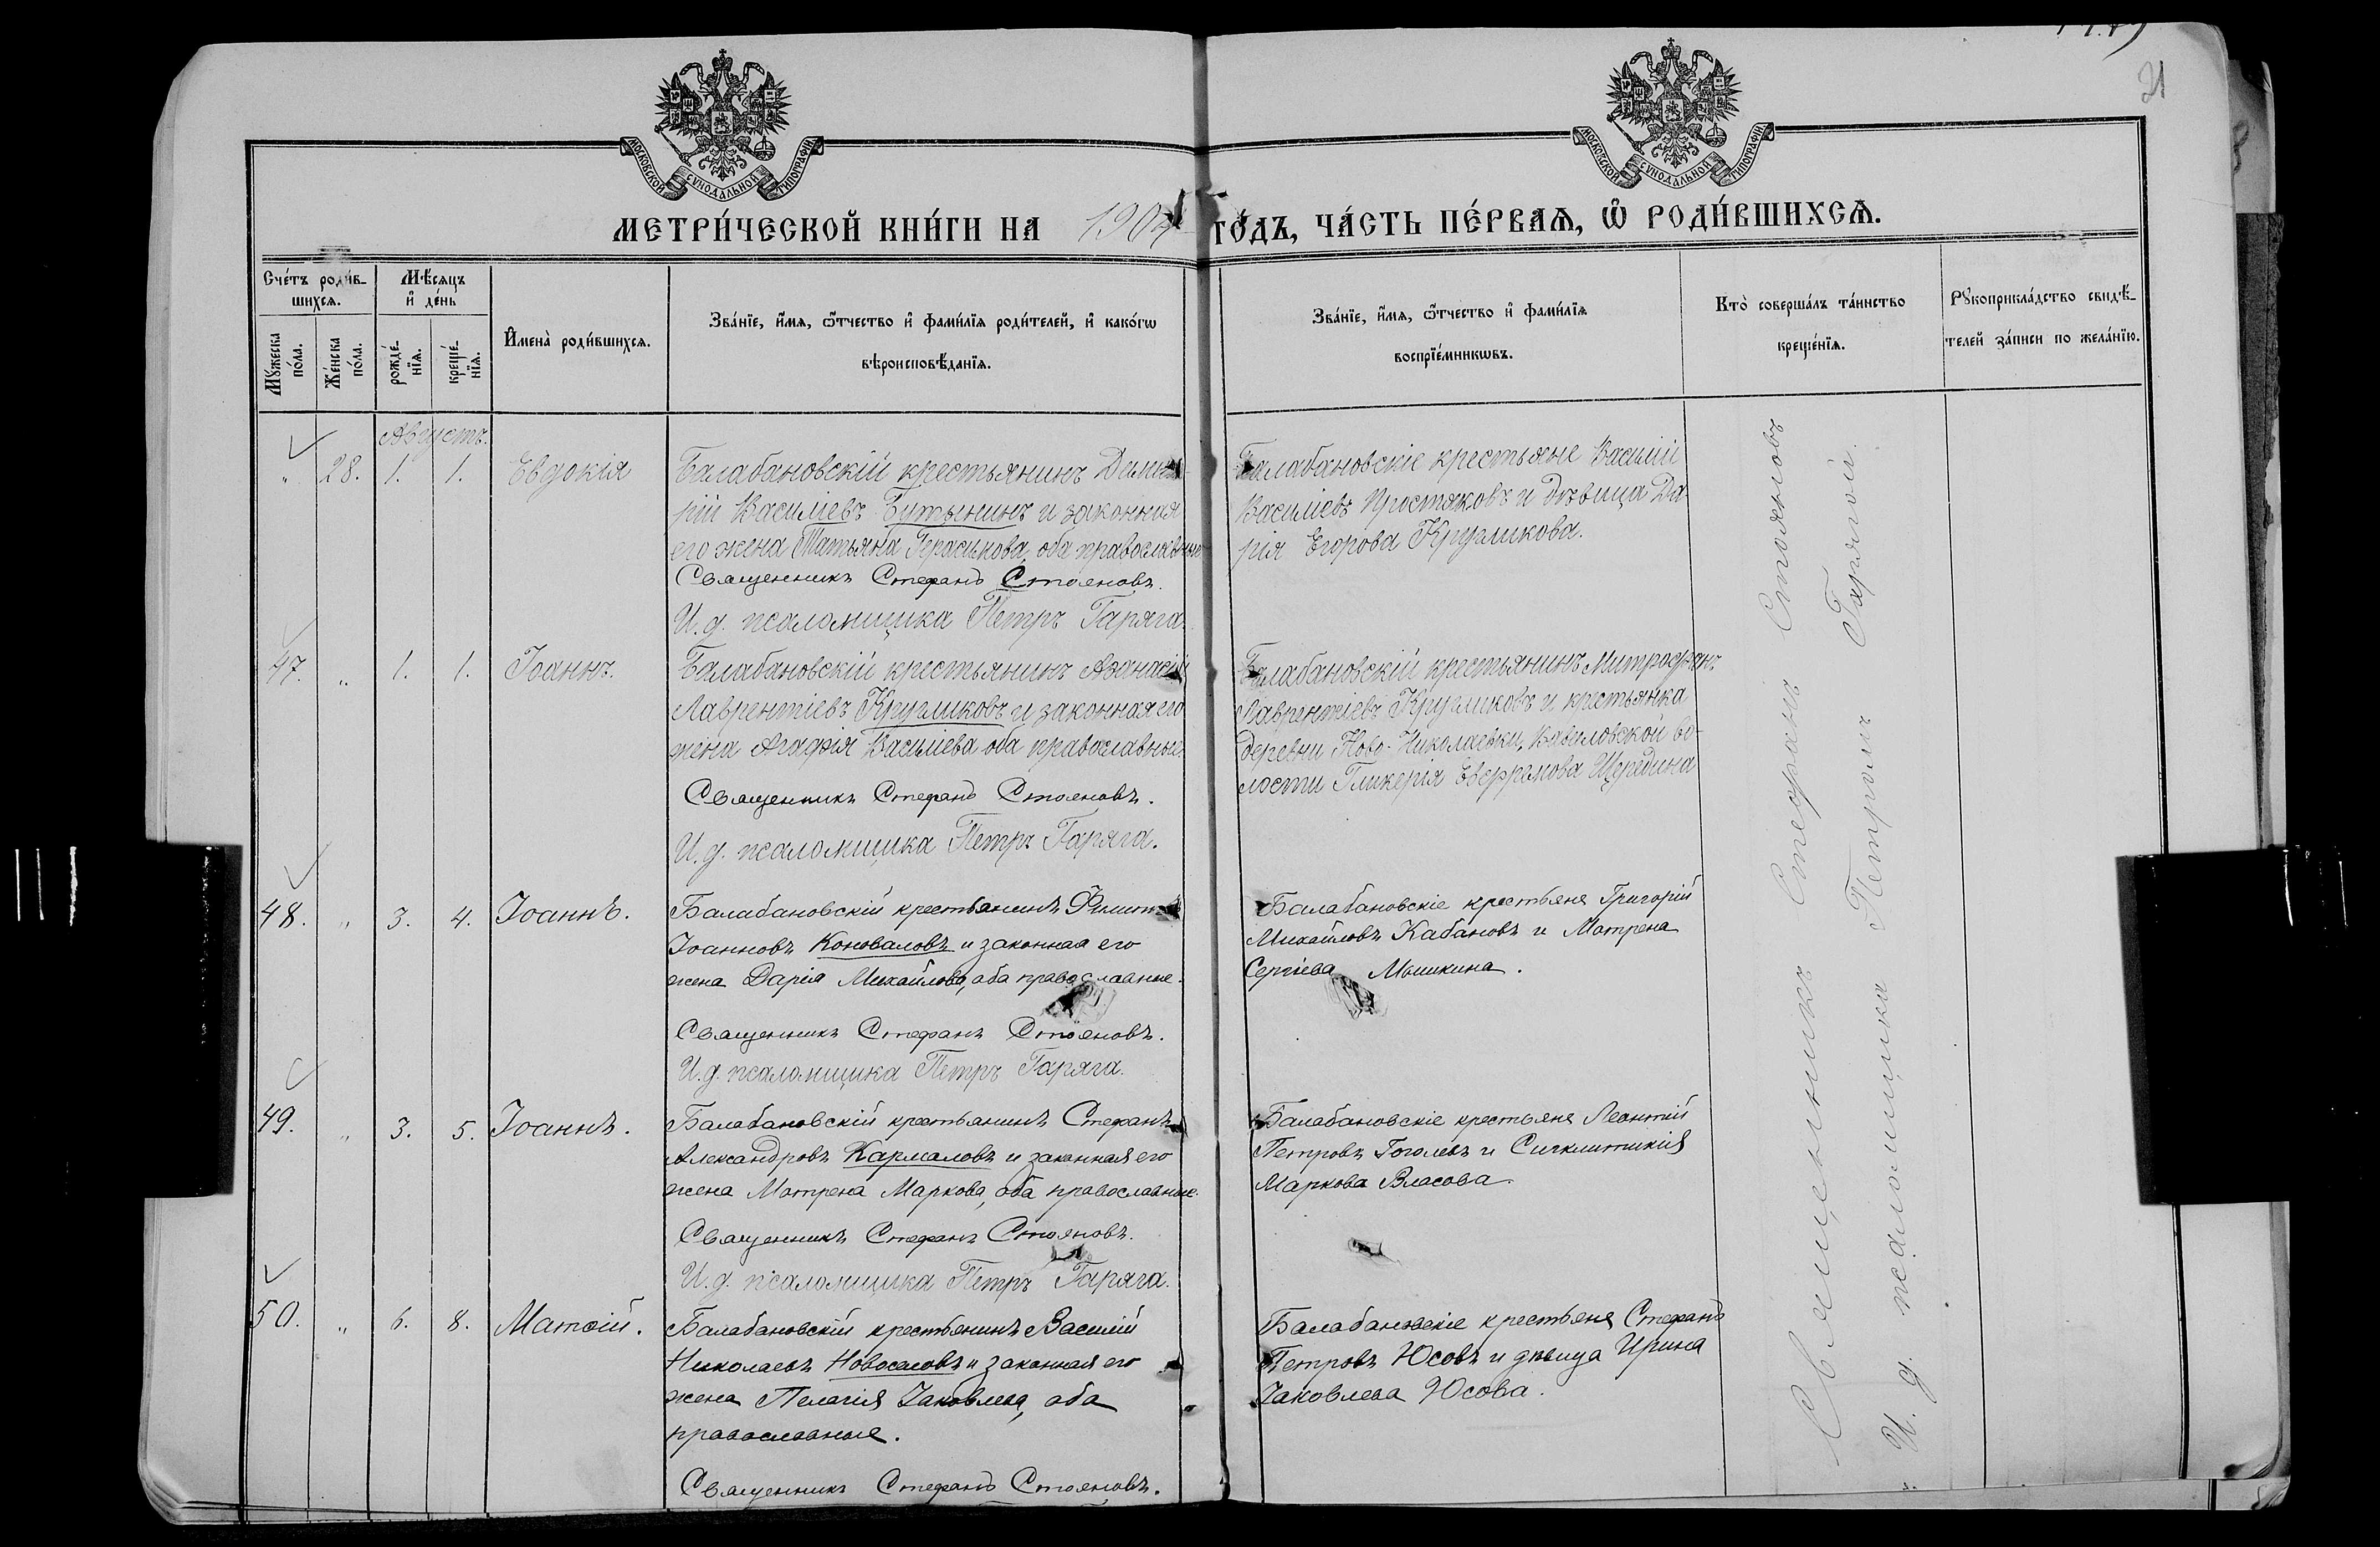 МОСКОВСКОЙ СѴНОДАЛЬНОЙ ТИПОГРАФІИ
МОСКОВСКОЙ СѴНОДАЛЬНОЙ ТИПОГРАФІИ
21
МЕТРИ́ЧЕСКОЙ КНИ́ГИ НА 1904 ГО́ДЪ, ЧА́СТЬ ПЕ́РВАѦ, Ѽ РОДИ́ВШИХСѦ.
Сче́тъ роди́в-
шихсѧ.
Мꙋжеска
по́ла.
Же́нска
по́ла.
Мѣ́сѧцъ
и҆ де́нь
рожде́-
нїѧ.
креще́-
нїѧ.
И҆мена̀ роди́вшихсѧ.
Зва́нїе, и҆́мѧ, ѻ҆́тчество и҆ фами́лїѧ роди́телей, и҆ како́гѡ
вѣроисповѣ́данїѧ.
Зва́нїе, и҆́мѧ, ѻ҆́тчество и҆ фами́лїѧ
воспрїе́мникѡвъ.
Кто̀ соверша́лъ та́инство
креще́нїѧ.
Рꙋкоприкла́дство свидѣ́-
телей за́писи по жела́нїю.
Августъ.
" 28. 1. 1. Евдокія
Балабановскій крестьянинъ Димит
рій Василіевъ Бутынинъ и законная
его жена Татьяна Герасимова, оба православные
Священникъ Стефанъ Стояновъ.
И. д. псаломщика Петръ Гаряга.
Балабановскіе крестьяне Василій
Василіевъ Простяковъ и дѣвица Да-
рія Егорова Кругликова.
47. " 1. 1. Іоаннъ.
Балабановскій крестьянинъ Аѳанасій
Лаврентіевъ Кругликовъ и законная его
жена Агафія Василіева оба православные.
Священникъ Стефанъ Стояновъ.
И. д. псаломщика Петръ Гаряга.
Балабановскій крестьянинъ Митрофанъ
Лаврентіевъ Кругликовъ и крестьянка
деревни Ново-Николаевки, Вавиловской во-
лости Гликерія Евфремова Щередина
48. " 3. 4. Іоаннъ.
Балабановскій крестьянинъ Филиппъ
Іоанновъ Коноваловъ и законная его
жена Дарія Михайлова, оба православные.
Священникъ Стефанъ Стояновъ.
И. д. псаломщика Петръ Гаряга.
Балабановскіе крестьяне Григорій
Михайловъ Кабановъ и Матрена
Сергіева Мышкина.
49. " 3. 5. Іоаннъ.
Балабановскій крестьянинъ Стефанъ
Александровъ Кармаловъ и законная его
жена Матрена Маркова, оба православные.
Священникъ Стефанъ Стояновъ.
И. д. псаломщика Петръ Гаряга.
Балабановскіе крестьяне Леонтій
Петровъ Гоголевъ и Сигклитикія
Маркова Власова.
50. " 6. 8. Матѳій.
Балабановскій крестьянинъ Василій
Николаевъ Новоселовъ и законная его
жена Пелагія Іаковлева, оба
православные.
Священникъ Стефанъ Стояновъ.
Балабановскіе крестьяне Стефанъ
Петровъ Юсовъ и дѣвица Ирина
Іаковлева Юсова.
Священникъ Стефанъ Стояновъ
И. д. псаломщика Петромъ Гарягой.